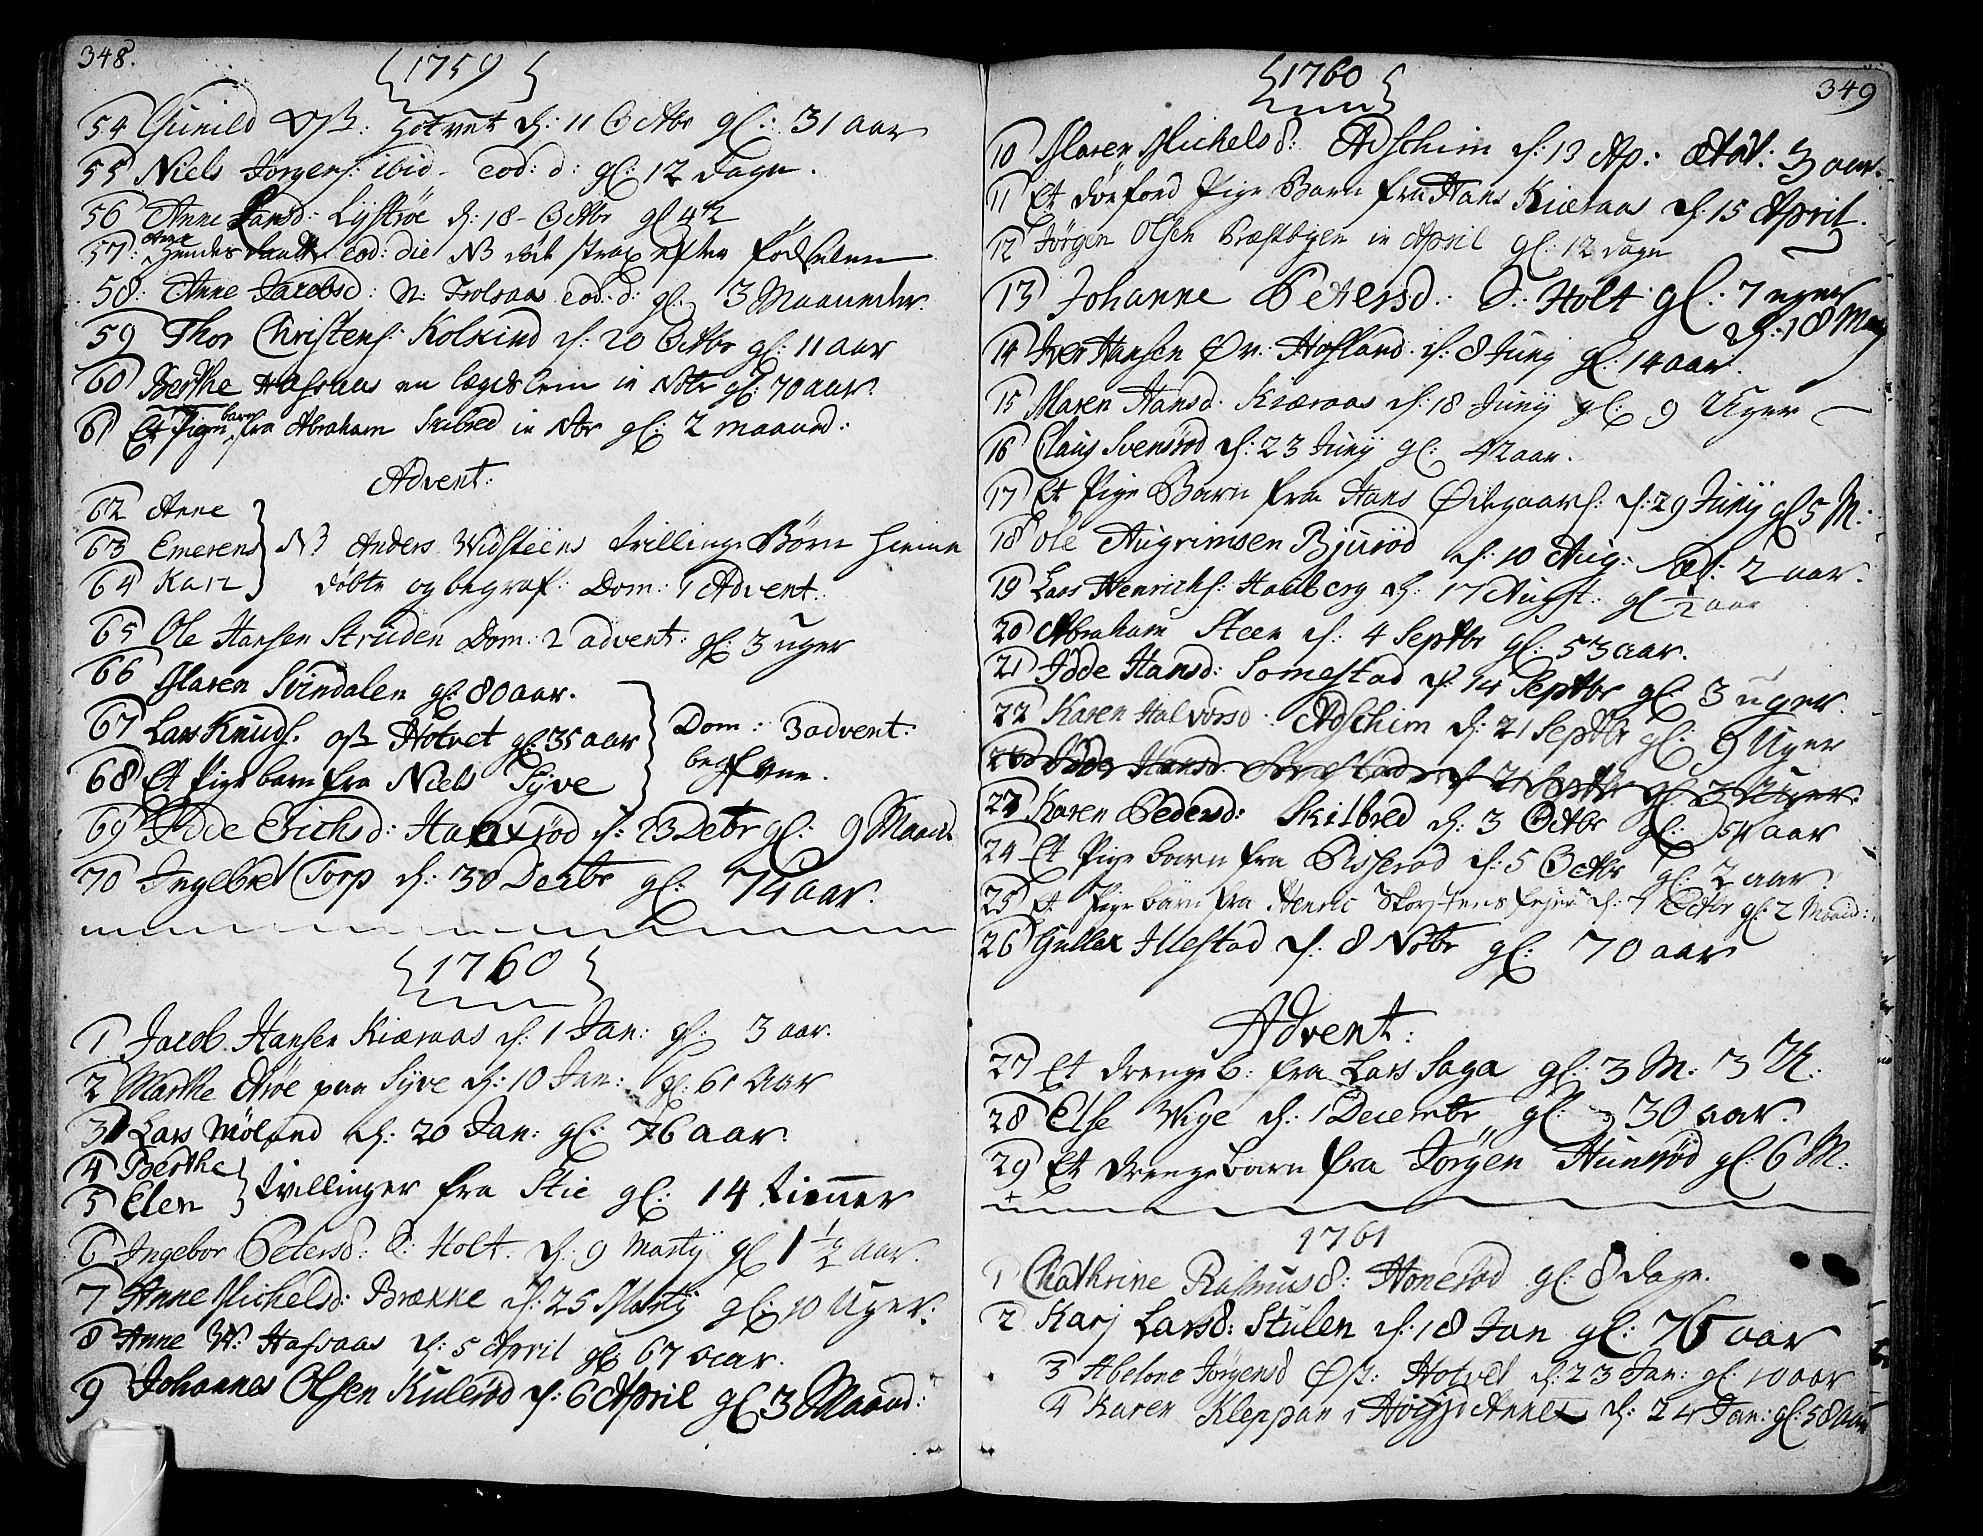 348.
1759
54 Gunild Øst: Hotvet d: 11 Octbr gl: 31 aar
55 Niels Jørgens: ibid- eod: d: gl: 12 dage.
56 Anne Hansd: Lystrøe d: 18- Octbr gl 4
57: eod: die NB død strax efter fødselen
58: Anne Jacobsd: N: Trolsaas eod: d: gl: 3 Maaneder.
59 Thor Christens: Kolkind d: 20 Octbr gl: 11 aar
60 Berthe Hafsaas en lægdslem in Nobr gl: 70 aar.
61 Et Pige barn fra Abraham Skibred in Nbr gl: 2 maaned:
Advent:
62 Anne
63 Emerens NB Anders Widsteens trillinge Børn hieme
64 Kari døbte og begraf: Dom: 1 Advent.
65 Ole Hansen Struden Dom: 2 advent: gl: 3 uger
66 Maren Svindalen gl: 80 aar.
67 Lars Knuds. øst Hotvet gl: 35 aar Dom: 3 advent:
68 Et Pige barn fra Niels Syve
69 Idde Erichsd: d: 23 Debr gl: 9 Maand
70 Ingebret Torp d: 30 Decbr gl: 74 aar.
1760
1 Jacob Hansen Kiæraas d: 1 Jan: gl: 3 aar.
2 Marthe paa Syve d: 10 Jan: gl: 61 Aar
3 Lars Møland d: 20 Jan: gl: 76 aar.
4 Berthe
5 Elen tvillinger fra Stie gl: 14 timer
6 Ingebor Petersd: S: Holt. d: 9 Martij gl 1 1/2 Aar.
7 Anne Michelsd: Brække d: 25 Martij gl: 10 Uger.
8 Anne N: Hafsaas d: 5 April gl: 67 aar.
9 Johannes Olsen Kulerød d: 6 April gl 3 Maaned:
1760
349
10 Maren Michelsd: Adschim d: 13 Ap: ætat: 3 aar.
11 Et dødfød Pige Barn fra Hans Kiæraas d: 15 April.
12 Jørgen Olsen Præstbyen in April gl: 12 dage
13 Johanne Petersd: S: Holt gl: 7 uger
d: 18 Maij
14 Iver Hansen Ør: Hafland d: 8 Junij gl: 14 aar.
15 Maren Hansd. Kiæraas d: 18 Junij gl: 9 Uger
16 Claus Svensrød d: 23 Junij gl: 42 aar.
17 Et Pige Barn fra Hans Ødegaards: d: 29 Junij gl 5 M:
18 Ole Augrimsen Bjurød d: 10 Aug: æt: 2 aar.
19 Lars Henrichs: Haaberg d: 17 Augst: gl 1/2 aar
20 Abraham Steen d: 4 Septbr gl: 53 aar.
21 Idde Hansd: Somestad d: 14 Septbr gl: 3 uger.
22 Karen Halvorsd. Adschim d: 21 Septbr gl: 9 Uger
Idde Hansd. d 21 Septbr gl 3 Uger.
23 Karen Pedersd: Skilbred d: 3 Octbr gl: 54 aar
24 Et Pige barn fra Pisserød d: 5 Octbr gl: 2 aar.
25 Et Pige barn fra Henric Skorstensfejer d: 7 Octbr gl: 2 Maaned:
26 Gullex Illestad d: 8 Nobr gl: 70 aar
Advent:
27 Et drenge b: fra Lars Saga gl: 3 M. 3 U.
28 Else Vige d: 1 Decembr gl: 30 aar.
29 Et drengebarn fra Jörgen Hunsrød gl: 6 M.
1761
1 Chathrine Rasmusd: Honerød gl: 8 dage.
2 Karj Larsd: Stulen d: 18 Jan gl: 75 aar
3 Abelone Jørgensd Øst: Hotvet d: 23 Jan: gl: 10 aar
4 Karen Kleppan d: 24 Jan: gl: 58 aar